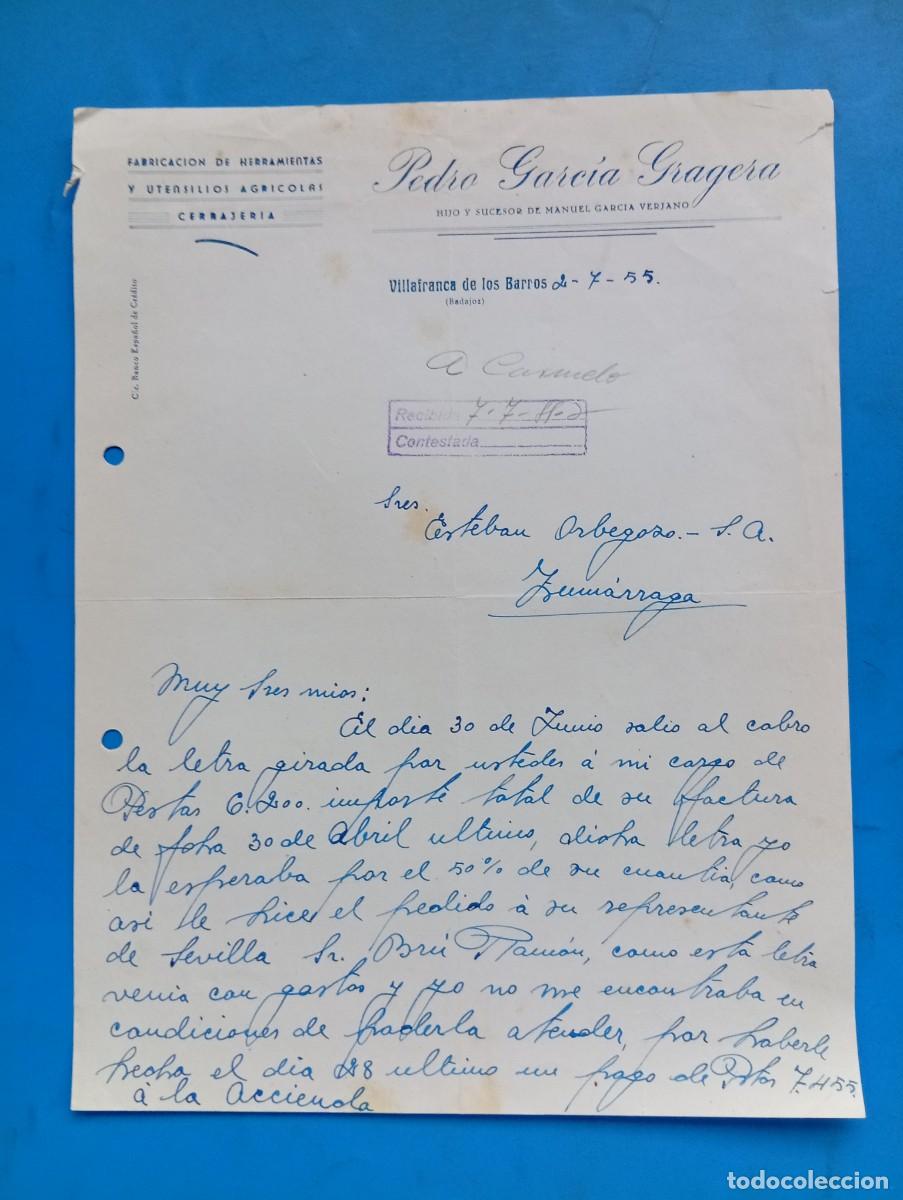 FABRICACION DE HERRAMIENTAS
Y UTENSILIOS AGRICOLAS
CERRAJERIA
Pedro García Gragera
HIJO Y SUCESOR DE MANUEL GARCIA VERJANO
C/c. Banco Español de Crédito
Villafranca de los Barros 2-7-55.
(Badajoz)
A
Recibida 7-7-
Contestada
Sres.
Esteban Orbegozo.- S.A.
Zumárraga
Muy Sres mios:
El dia 30 de Junio salio al cobro
la letra girada por ustedes á mi cargo de
Pestas 6.200. importe total de su factura
de fcha 30 de Abril ultimo, dicha letra yo
la esperaba por el 50% de su cuantia, como
asi le hice el pedido á su representante
de Sevilla Sr. Brú Ramón, como esta letra
venia con gastos y yo no me encontraba en
condiciones de poderla atender, por haberle
hecho el dia 28 ultimo un pago de Pstas 7.455.
á la
todocoleccion
todocoleccion.net